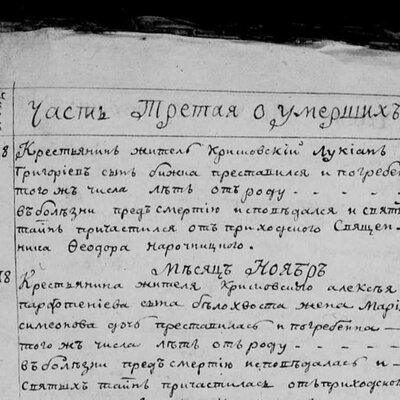 Часть Третая о умершихъ
8 Крестьянинъ житель Кришовскій Лукіанъ
Григоріевъ сынъ преставился и погребенъ
того жъ числа лѣтъ отъ роду - - - -
въ болѣзни предъ смертію исповѣдался и святы
таинъ причастился отъ приходского Священ-
ника Ѳеодора Нарочницкого.
Мѣсяцъ Ноябрь
18 Крестьянина жителя Кришовского алексѣя
парфентіева сына бѣлохвоста жена Марія
симеонова дочь преставилась и погребенна
того жъ числа лѣтъ отъ роду - - -
въ болѣзни предъ смертію исповѣдалась и
святыхъ таинъ причастилась отъ приходск